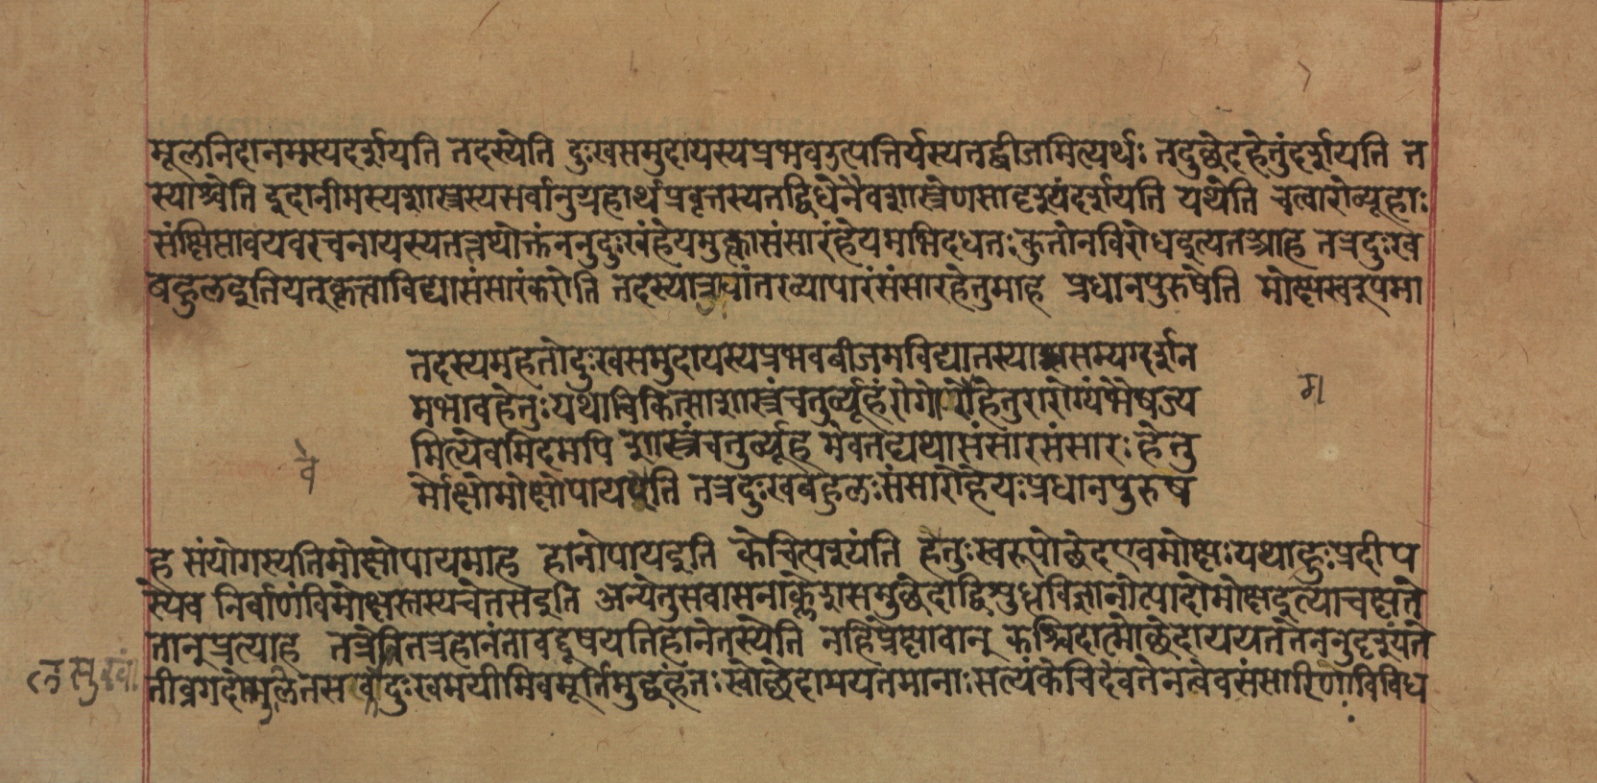 मूलनिदानमस्यदर्शयति तदस्येति दुःखसमुदायस्यप्रभवउत्पत्तिर्यस्यतद्बीजमित्यर्थः तदुछेदहेतुंदर्शयति त
स्याश्चेति इदानीमस्यशास्त्रस्यसर्वानुग्रहार्थंप्रवृत्तस्यतद्विधेनैवशास्त्रेणसादृश्यंदर्शयति यथेति चत्वारोव्यूहाः
संक्षिप्तावयवरचनायस्यतत्तथोक्तंननुदुःखंहेयमुक्त्वासंसारंहेयमभिदधतःकुतोनविरोधइत्यतआह तत्रदुःख
बहुलइतियत्कृत्वाविद्यासंसारंकरोति तदस्याअवांतरव्यापारंसंसारहेतुमाह प्रधानपुरुषेति मोक्षस्वरूपमा
तदस्यमहतोदुःखसमुदायस्यप्रभवबीजमविद्यातस्याश्चसम्यग्दर्शन
मभावहेतुःयथाचिकित्साशास्त्रंचतुर्व्यूहंरोगोरोहेतुरारोग्यंभेषज्य
मित्येवमिदमपि शास्त्रंचतुर्व्यूह मेवतद्यथासंसारसंसारःहेतु
र्मोक्षोमोक्षोपायएवेति तत्रदुःखबहुलःसंसारोहेयःप्रधानपुरुष
ह संयोगस्येतिमोक्षोपायमाह हानोपायइति केचित्पश्यंति हेतुःस्वरूपोछेदएवमोक्षःयथाहुःप्रदीप
स्येव निर्वाणंविमोक्षस्तस्यचेतसइति अन्येतुसवासनाक्लेशसमुछेदाद्विशुध्धविज्ञानोत्पादोमोक्षइत्याचक्षते
तान्प्रत्याह तत्रेतितत्रहानंतावद्दूषयतिहानेतस्येति नहिप्रेक्षावान् कश्चिदात्मोछेदाययततेननुदृश्यंते
तीव्रगदोन्मूलितसर्वदुःखमयीमिवमूर्तिमुद्वहंतःस्वोछेदाययतमानाःसत्यंकेचिदेवतेनत्वेवसंसारिणोविविध
ग
वे
लसुखां